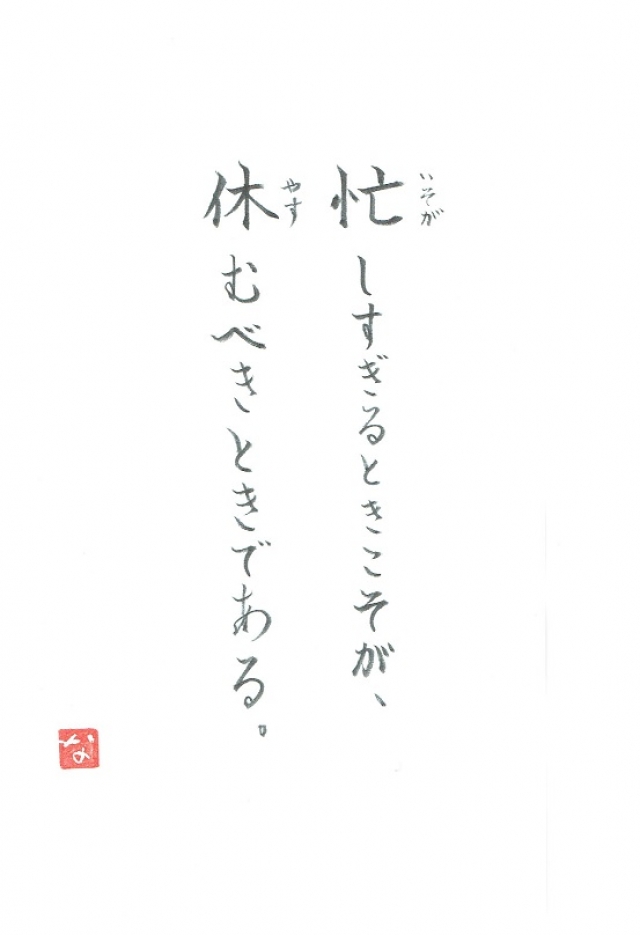 忙しすぎるときこそが、
いそが
休むべきときである。
やす
な